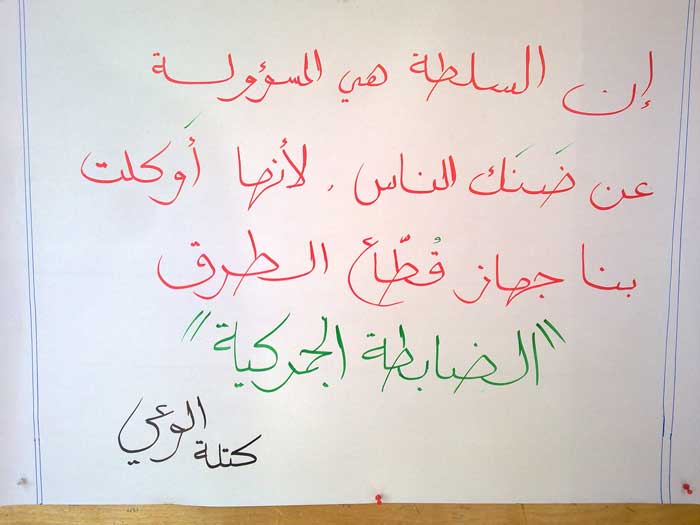 إن السلطة هي المسؤولة
عن ضَنَك الناس. لأنها أَوكلت
بنا جهاز قُطّاع الطرق
"الضابطة الجمركية"
كتلة الوعي